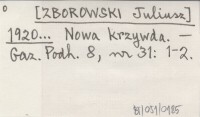 [ZBOROWSKI Juliusz]
1920... Nowa krzywda. —
Gaz. Podh. 8, nr 31: 1-2.
BJ/031/0185